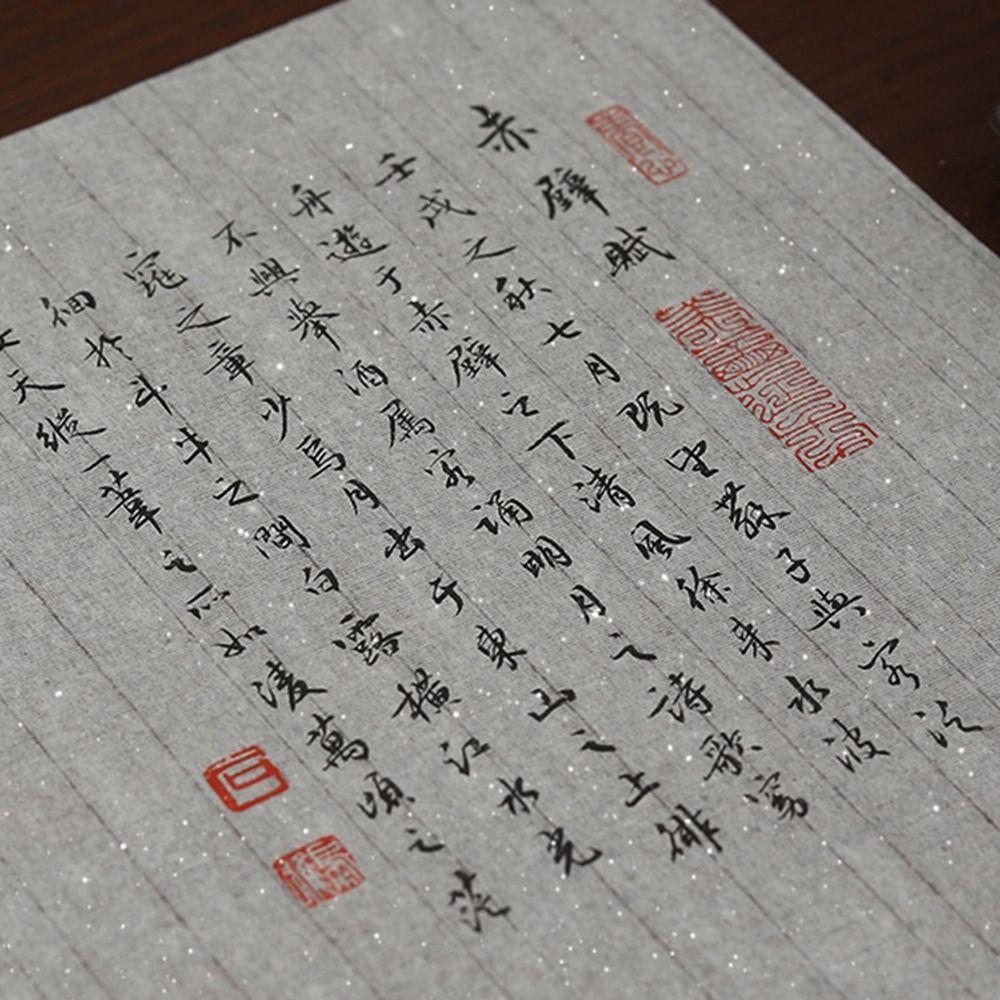 赤壁賦
壬戌之秋七月既望蘇子與客泛
舟遊于赤壁之下清風徐來水波
不興舉酒属客誦明月之詩歌窈
窕之章少焉月出于東山之上徘
徊於斗牛之間白露橫江水光
天縱一葦之所如淩萬頃之茫